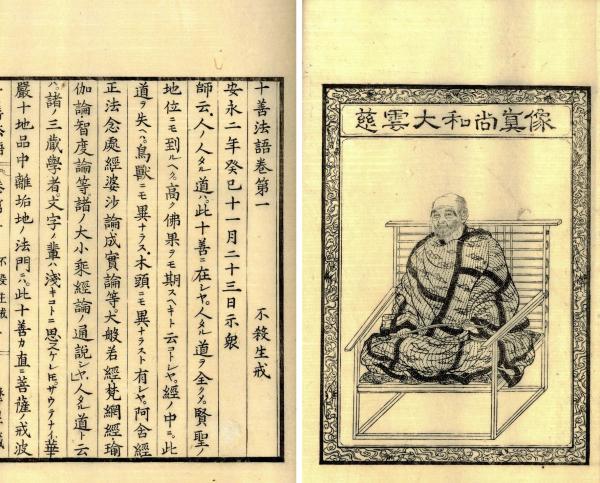 慈雲大和尚真像
十善法語巻第一 不殺生戒
安永二年癸巳十一月二十三日示衆
師云。人ノ人タル道ハ。此十善ニ在シヤ。人タル道ヲ全クメ。賢聖ノ
地位ニモ到ルヘク。高ク佛果ヲモ期スヘキト云コトシヤ。經ノ中ニ。此
道ヲ失ヘハ。鳥獸ニモ異ナラス。木頭ニモ異ナラスト有シヤ。阿含經
正法念處經婆沙論成實論等。大般若經梵網經瑜
伽論智度論等。諸ノ大小乘經論ノ通説シヤ。人タル道ト云
ハ。諸ノ三藏學者。文字ノ輩ハ淺キコトニ思ヘケレトモ。サウテナイ。華
嚴十地品中離垢地ノ法門ニハ。此十善カ直ニ菩薩ノ戒波